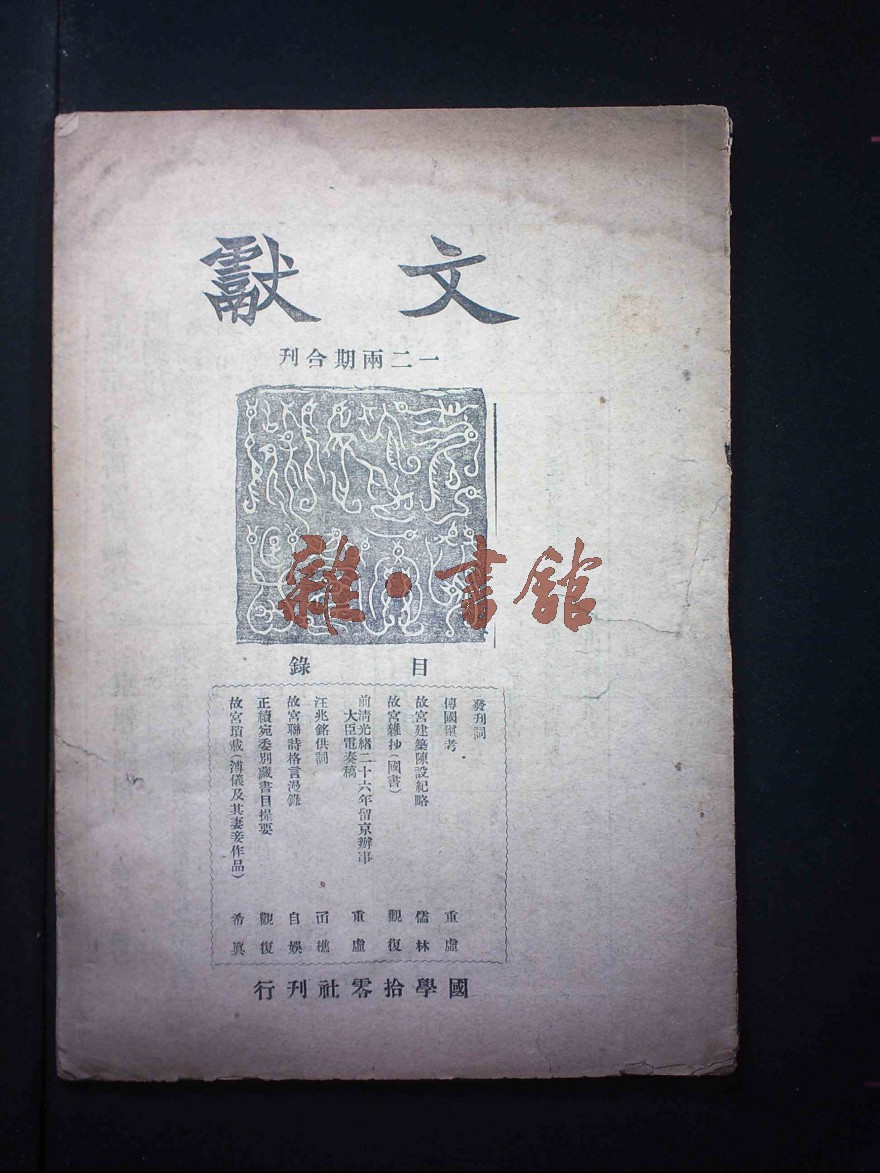 文獻
一二兩期合刊
雜·書館
目錄
發刊詞
傳國璽考 重虛
故宮建築陳設紀略 儒林
故宮雜抄(國書) 觀復
前清光緒二十六年留京辦事
大臣電奏稿 重虛
汪兆銘供詞 樵
故宮聯詩格言漫錄 自娛
正續宛委別藏書目提要 觀復
故宮瑣載(溥儀及其妻妾作品) 希真
國學拾零社刊行